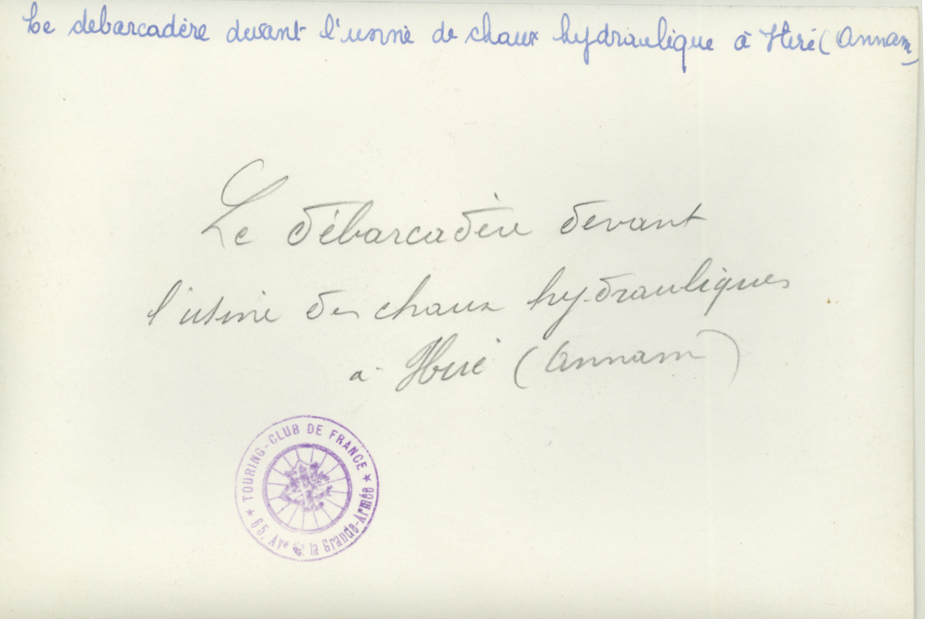 Le debarcadère devant l'usine de chaux hydraulique à Huré (Annam)
Le débarcadère devant
l'usine des chaux hydrauliques
a Hué (Annam)
TOURING-CLUB DE FRANCE
65, Ave de la Grande-Armée